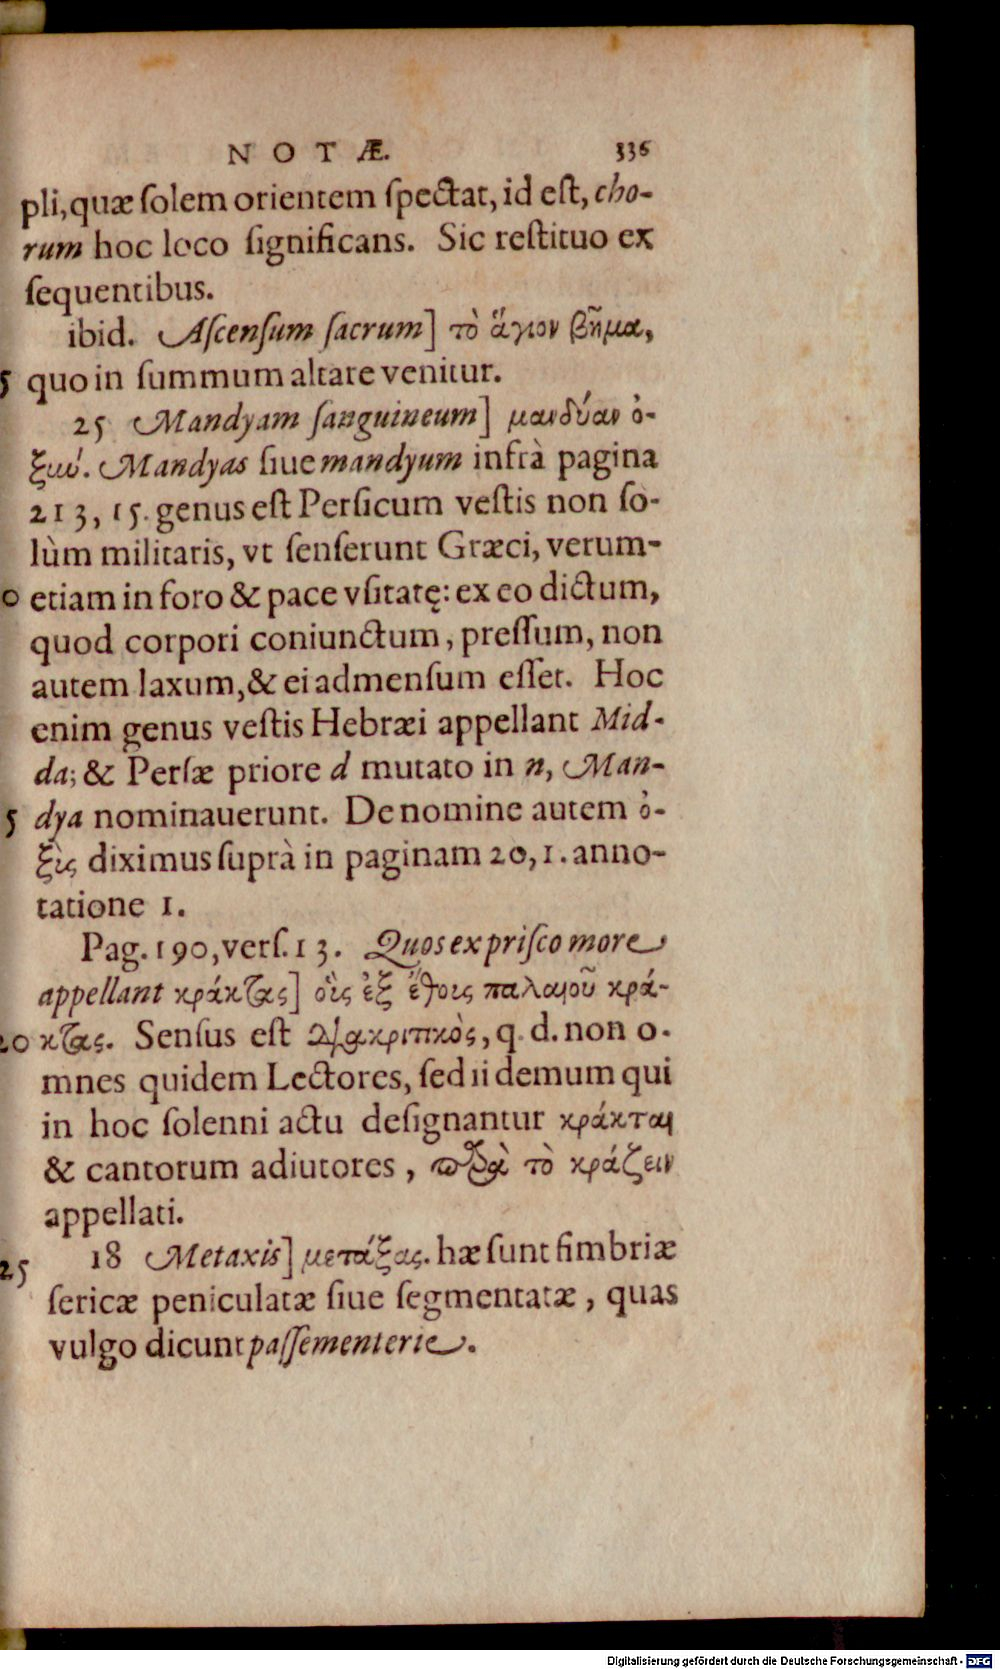 NOTÆ. 336
pli, quæ ſolem orientem ſpectat, id eſt, cho-
rum hoc loco ſignificans. Sic reſtituo ex
ſequentibus.
ibid. Aſcenſum ſacrum] τὸ ἅγιον βῆμα,
5 quo in ſummum altare venitur.
25 Mandyam ſanguineum] μανδύαν ὀ-
ξύν. Mandyas ſiue mandyum infrà pagina
213, 15. genus eſt Perſicum veſtis non ſo-
lùm militaris, vt ſenſerunt Græci, verum-
0 etiam in foro & pace vſitatę: ex eo dictum,
quod corpori coniunctum, preſſum, non
autem laxum, & ei admenſum eſſet. Hoc
enim genus veſtis Hebræi appellant Mid-
da; & Perſæ priore d mutato in n, Man-
5 dya nominauerunt. De nomine autem ὀ-
ξὺς diximus ſuprà in paginam 20, 1. anno-
tatione 1.
Pag. 190, verſ. 13. Quos ex priſco more
appellant κράκτας] οὓς ἐξ ἔθους παλαιοῦ κρά-
20 κτας. Senſus eſt διακριτικὸς, q. d. non o-
mnes quidem Lectores, ſed ii demum qui
in hoc ſolenni actu deſignantur κράκται
& cantorum adiutores, παρὰ τὸ κράζειν
appellati.
25 18 Metaxis] μετάξας. hæ ſunt fimbriæ
ſericæ peniculatæ ſiue ſegmentatæ, quas
vulgo dicunt paſſementerie.
Digitalisierung gefördert durch die Deutsche Forschungsgemeinschaft - DFG